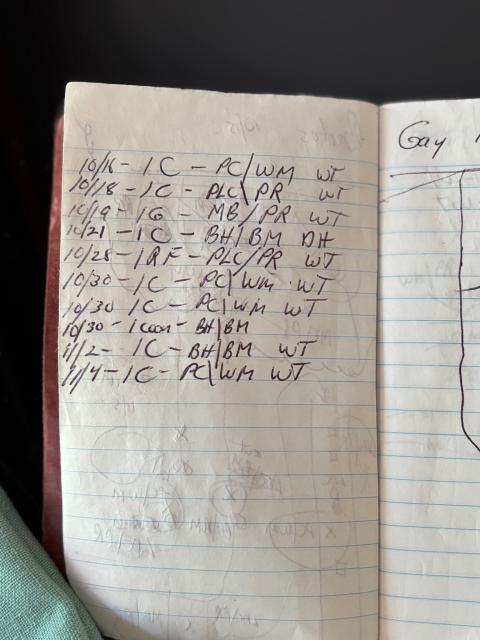 10/16 - 1C - PC/WM WT
10/18 - 1C - PLC\PR WT
10/19 - 1G - MB/PR WT
10/21 - 1C - BH/BM DH
10/28 - 1RF - PLC/PR WT
10/30 - 1C - PC/WM WT
10/30 1C - PC\WM WT
10/30 - 1 - BH|BM
11/2 - 1C - BH|BM WT
11/4 - 1C - PC\WM WT
Gay